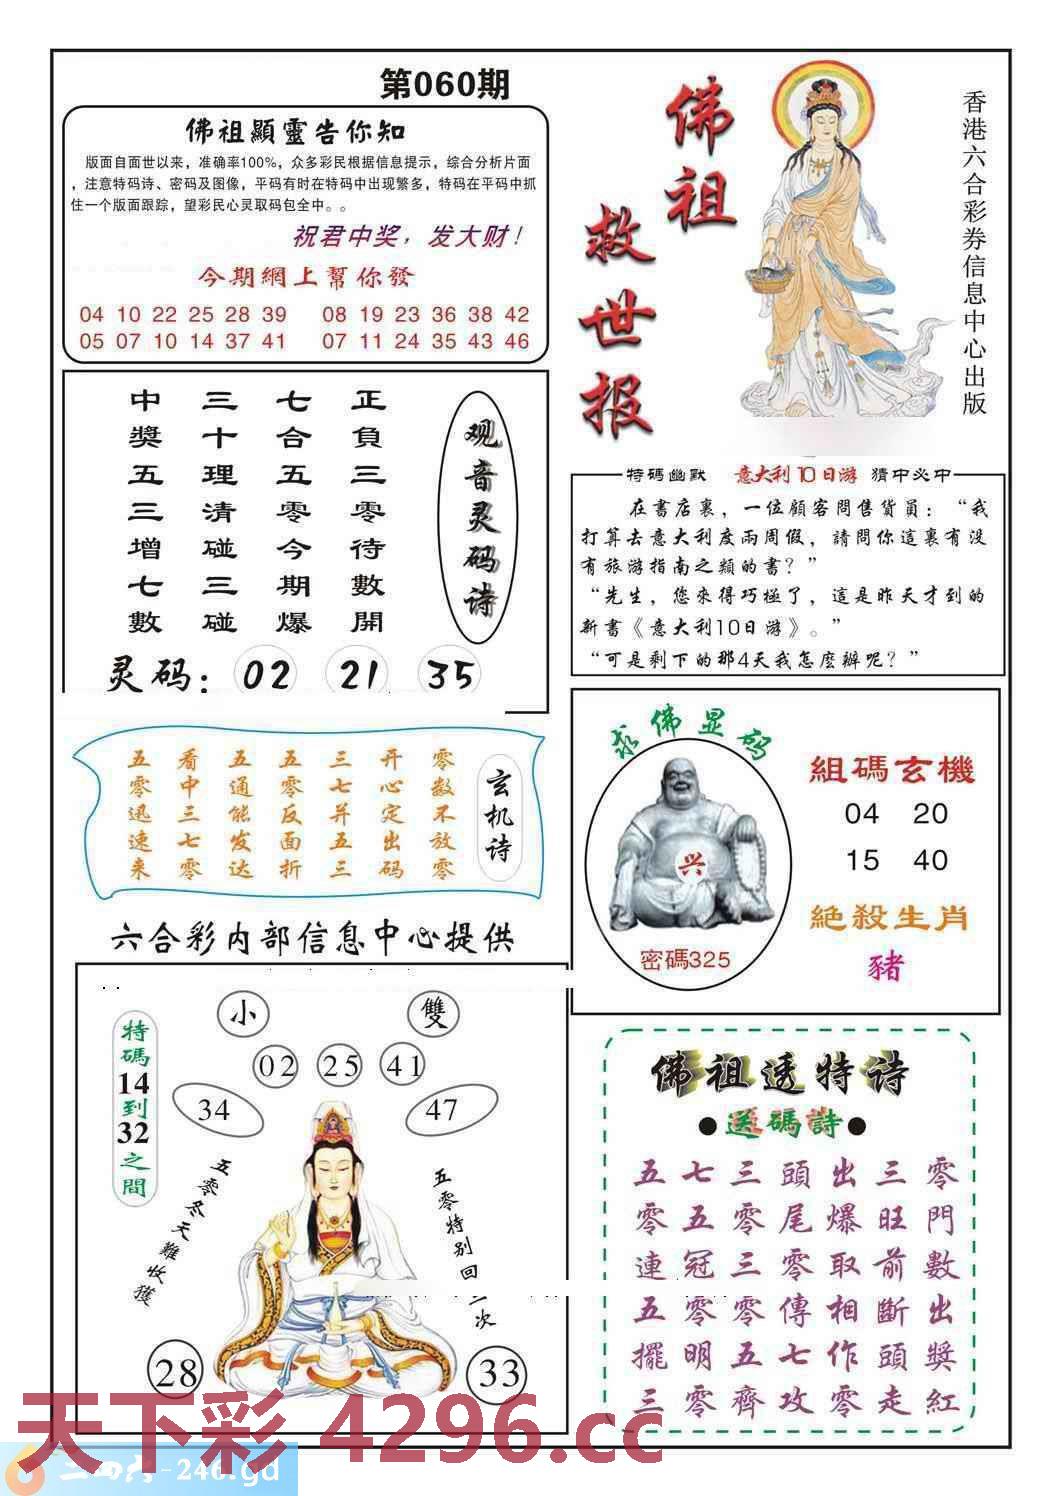 第060期
佛祖顯靈告你知
版面自面世以来，准确率100%，众多彩民根据信息提示，综合分析片面
，注意特码诗、密码及图像，平码有时在特码中出现繁多，特码在平码中抓
住一个版面跟踪，望彩民心灵取码包全中。。
祝君中奖，发大财！
今期網上幫你發
04 10 22 25 28 39 08 19 23 36 38 42
05 07 10 14 37 41 07 11 24 35 43 46
佛祖
救世报
香港六合彩券信息中心出版
观音灵码诗
正負三零待數開
七合五零今期爆
三十理清碰三碰
中獎五三增七數
灵码：02 21 35
特碼幽默 意大利10日游 猜中必中
在書店裏，一位顧客問售貨員：“我
打算去意大利度兩周假，請問你這裏有没
有旅游指南之類的書？”
“先生，您來得巧極了，這是昨天才到的
新書《意大利10日游》。”
“可是剩下的那4天我怎麼辦呢？”
玄机诗
零数不放零
开心定出码
三七并五三
五零反面折
五通能发达
看中三七零
五零迅速来
求佛显码
兴
密碼325
組碼玄機
04 20
15 40
絕殺生肖
豬
六合彩内部信息中心提供
特碼14到32之間
小
雙
02 25 41
34
47
五零冬天難收獲
五零特别回
次
28
33
佛祖透特诗
●送碼詩●
五七三頭出三零
零五零尾爆旺門
連冠三零取前數
五零零傳相斷出
擺明五七作頭獎
三零齊攻零走紅
天下彩 4296.cc
二四六-246.gd